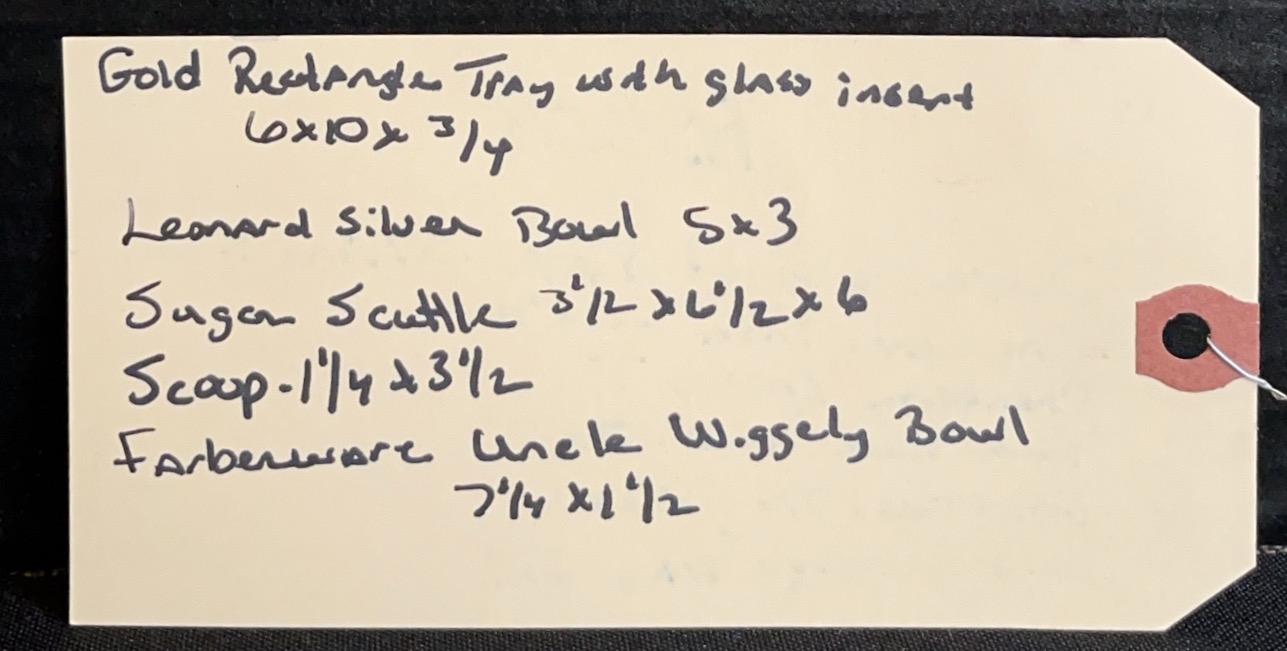 Gold Rectangle Tray with glass insert
6x10x 3/4
Leonard Silver Bowl 5x3
Sugar Scuttle 3 1/2 x 6 1/2 x 6
Scoop - 1 1/4 x 3 1/2
Farberware Uncle Wiggely Bowl
7 1/4 x 1 1/2